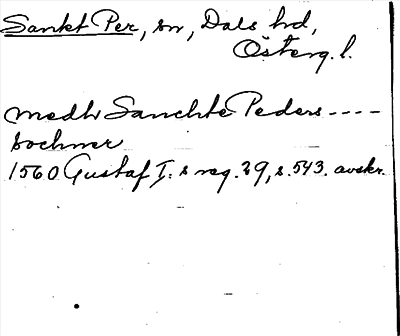 Sankt Per, sn, Dals hd,
Österg. l.
medh Sanchte Peders ----
sochner
1560 Gustaf I:s reg. 29, s. 543. avskr.